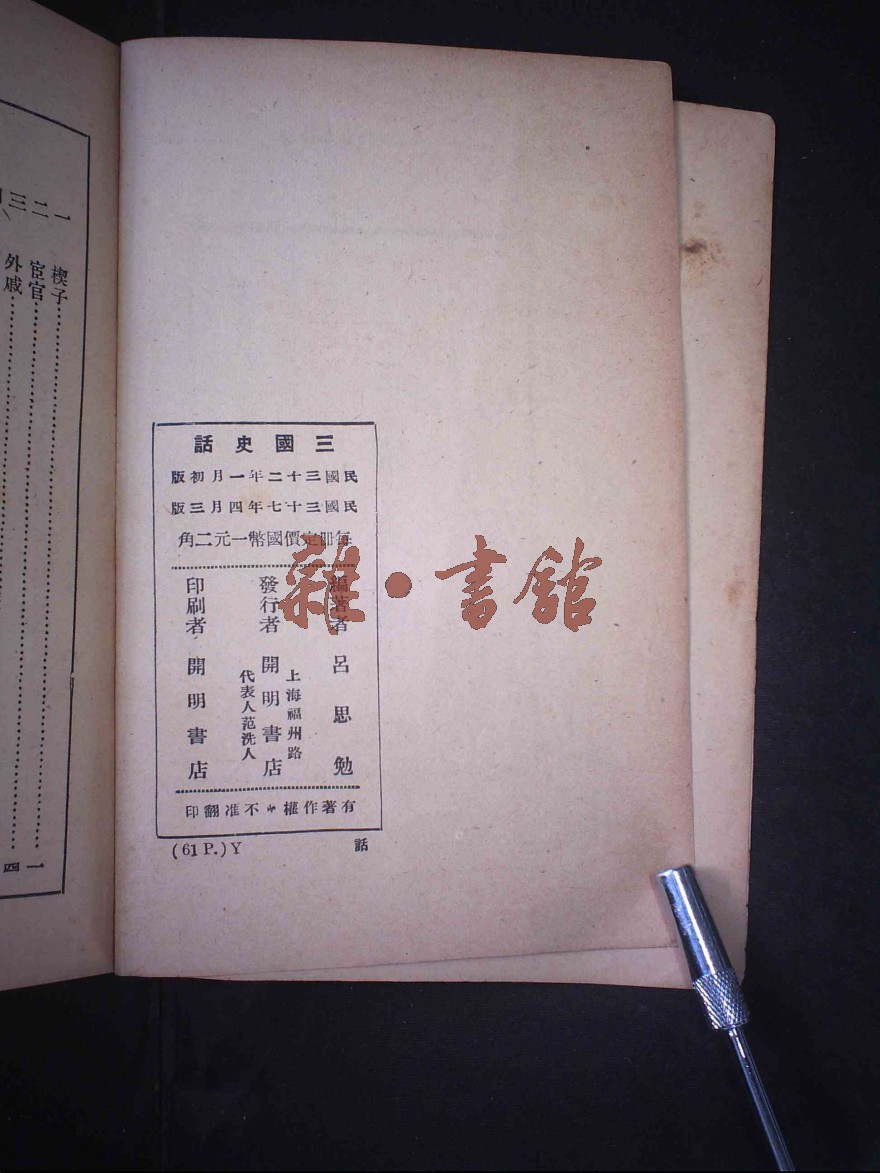 三國史話
民國三十二年一月初版
民國三十七年四月三版
每冊定價國幣一元二角
編著者 呂思勉
上海福州路
發行者 開明書店
代表人范洗人
印刷者 開明書店
有著作權不准翻印
(61 P.) Y 話
雜·書館
一 楔子
二 宦官
三 外戚
一
四